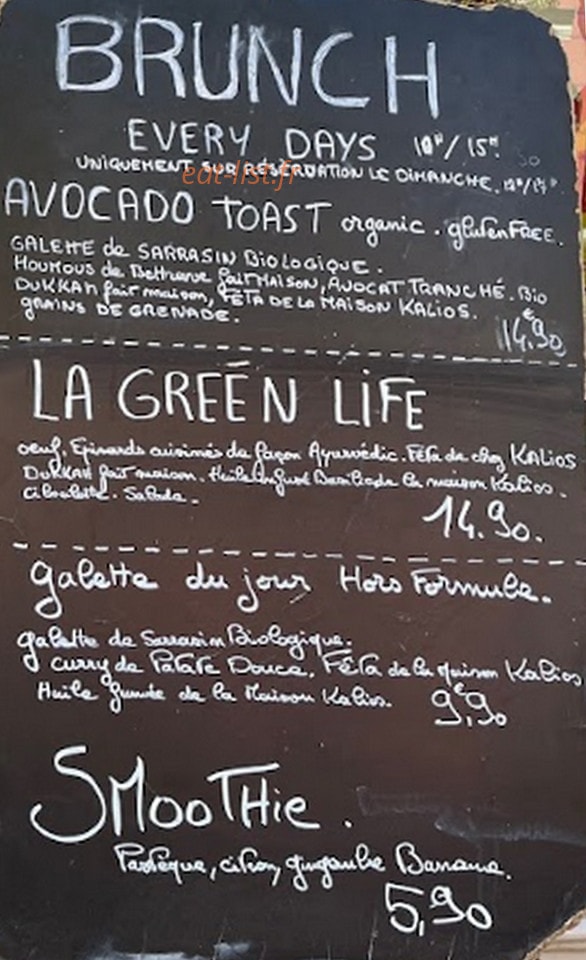 BRUNCH
EVERY DAYS 10H/15H
UNIQUEMENT SUR RÉSERVATION LE DIMANCHE.
eat-list.fr
AVOCADO TOAST organic. gluten FREE.
GALETTE de SARRASIN BIOLOGIQUE.
HOUMOUS de Betterave fait MAISON, AVOCAT TRANCHÉ. Bio
DUKKAH fait maison, FETA DE LA MAISON KALIOS.
GRAINS DE GRENADE.
14,90€
LA GREEN LIFE
oeuf. Epinards cuisinés de façon Ayurvédic. Féta de chez KALIOS
DUKKAH fait maison. Huile Basilic de la maison Kalios.
ciboulette. Salade.
14.90.
galette du jour Hors Formule.
galette de Sarrasin Biologique.
curry de Patate Douce. Féta de la maison Kalios
Huile fumée de la Maison Kalios. 9€,90
SMOOTHie.
Pastèque, citron, gingembre Banane.
5,90